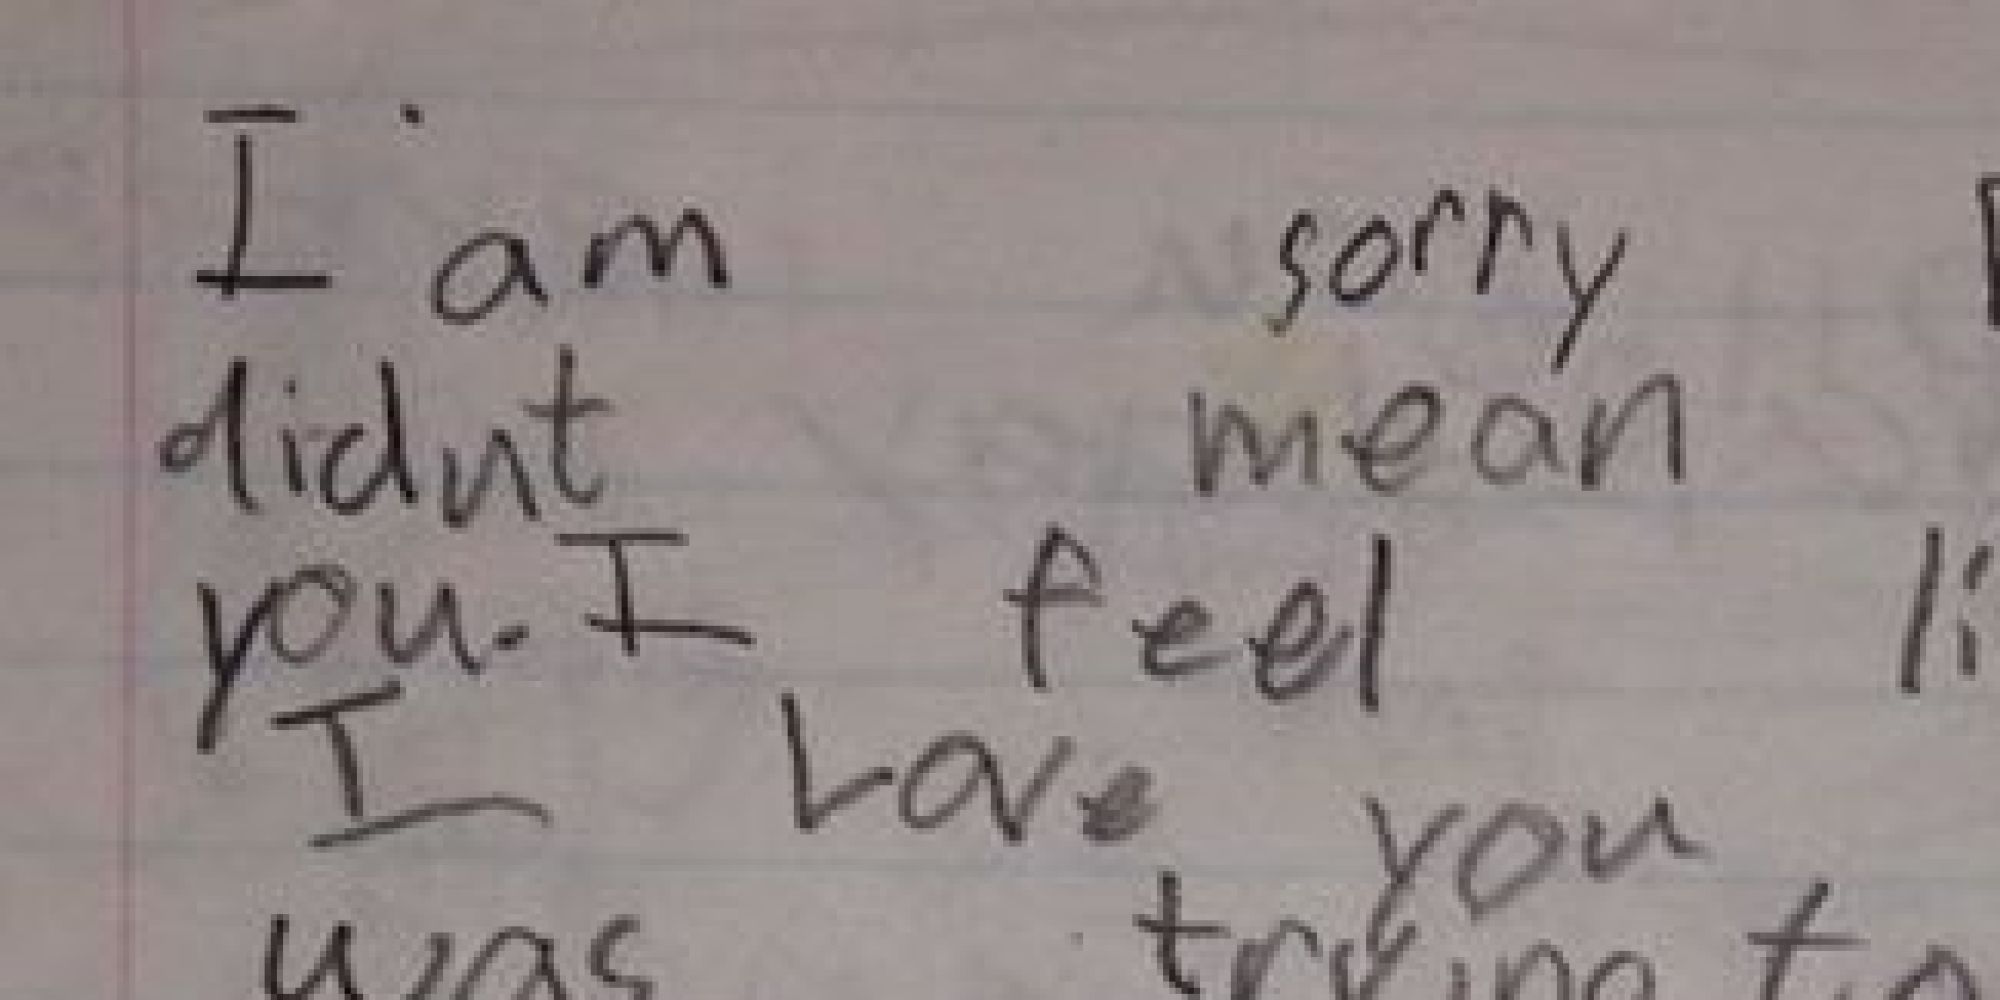 I am sorry
didnt mean
you. I feel li
I Love you
was trying to